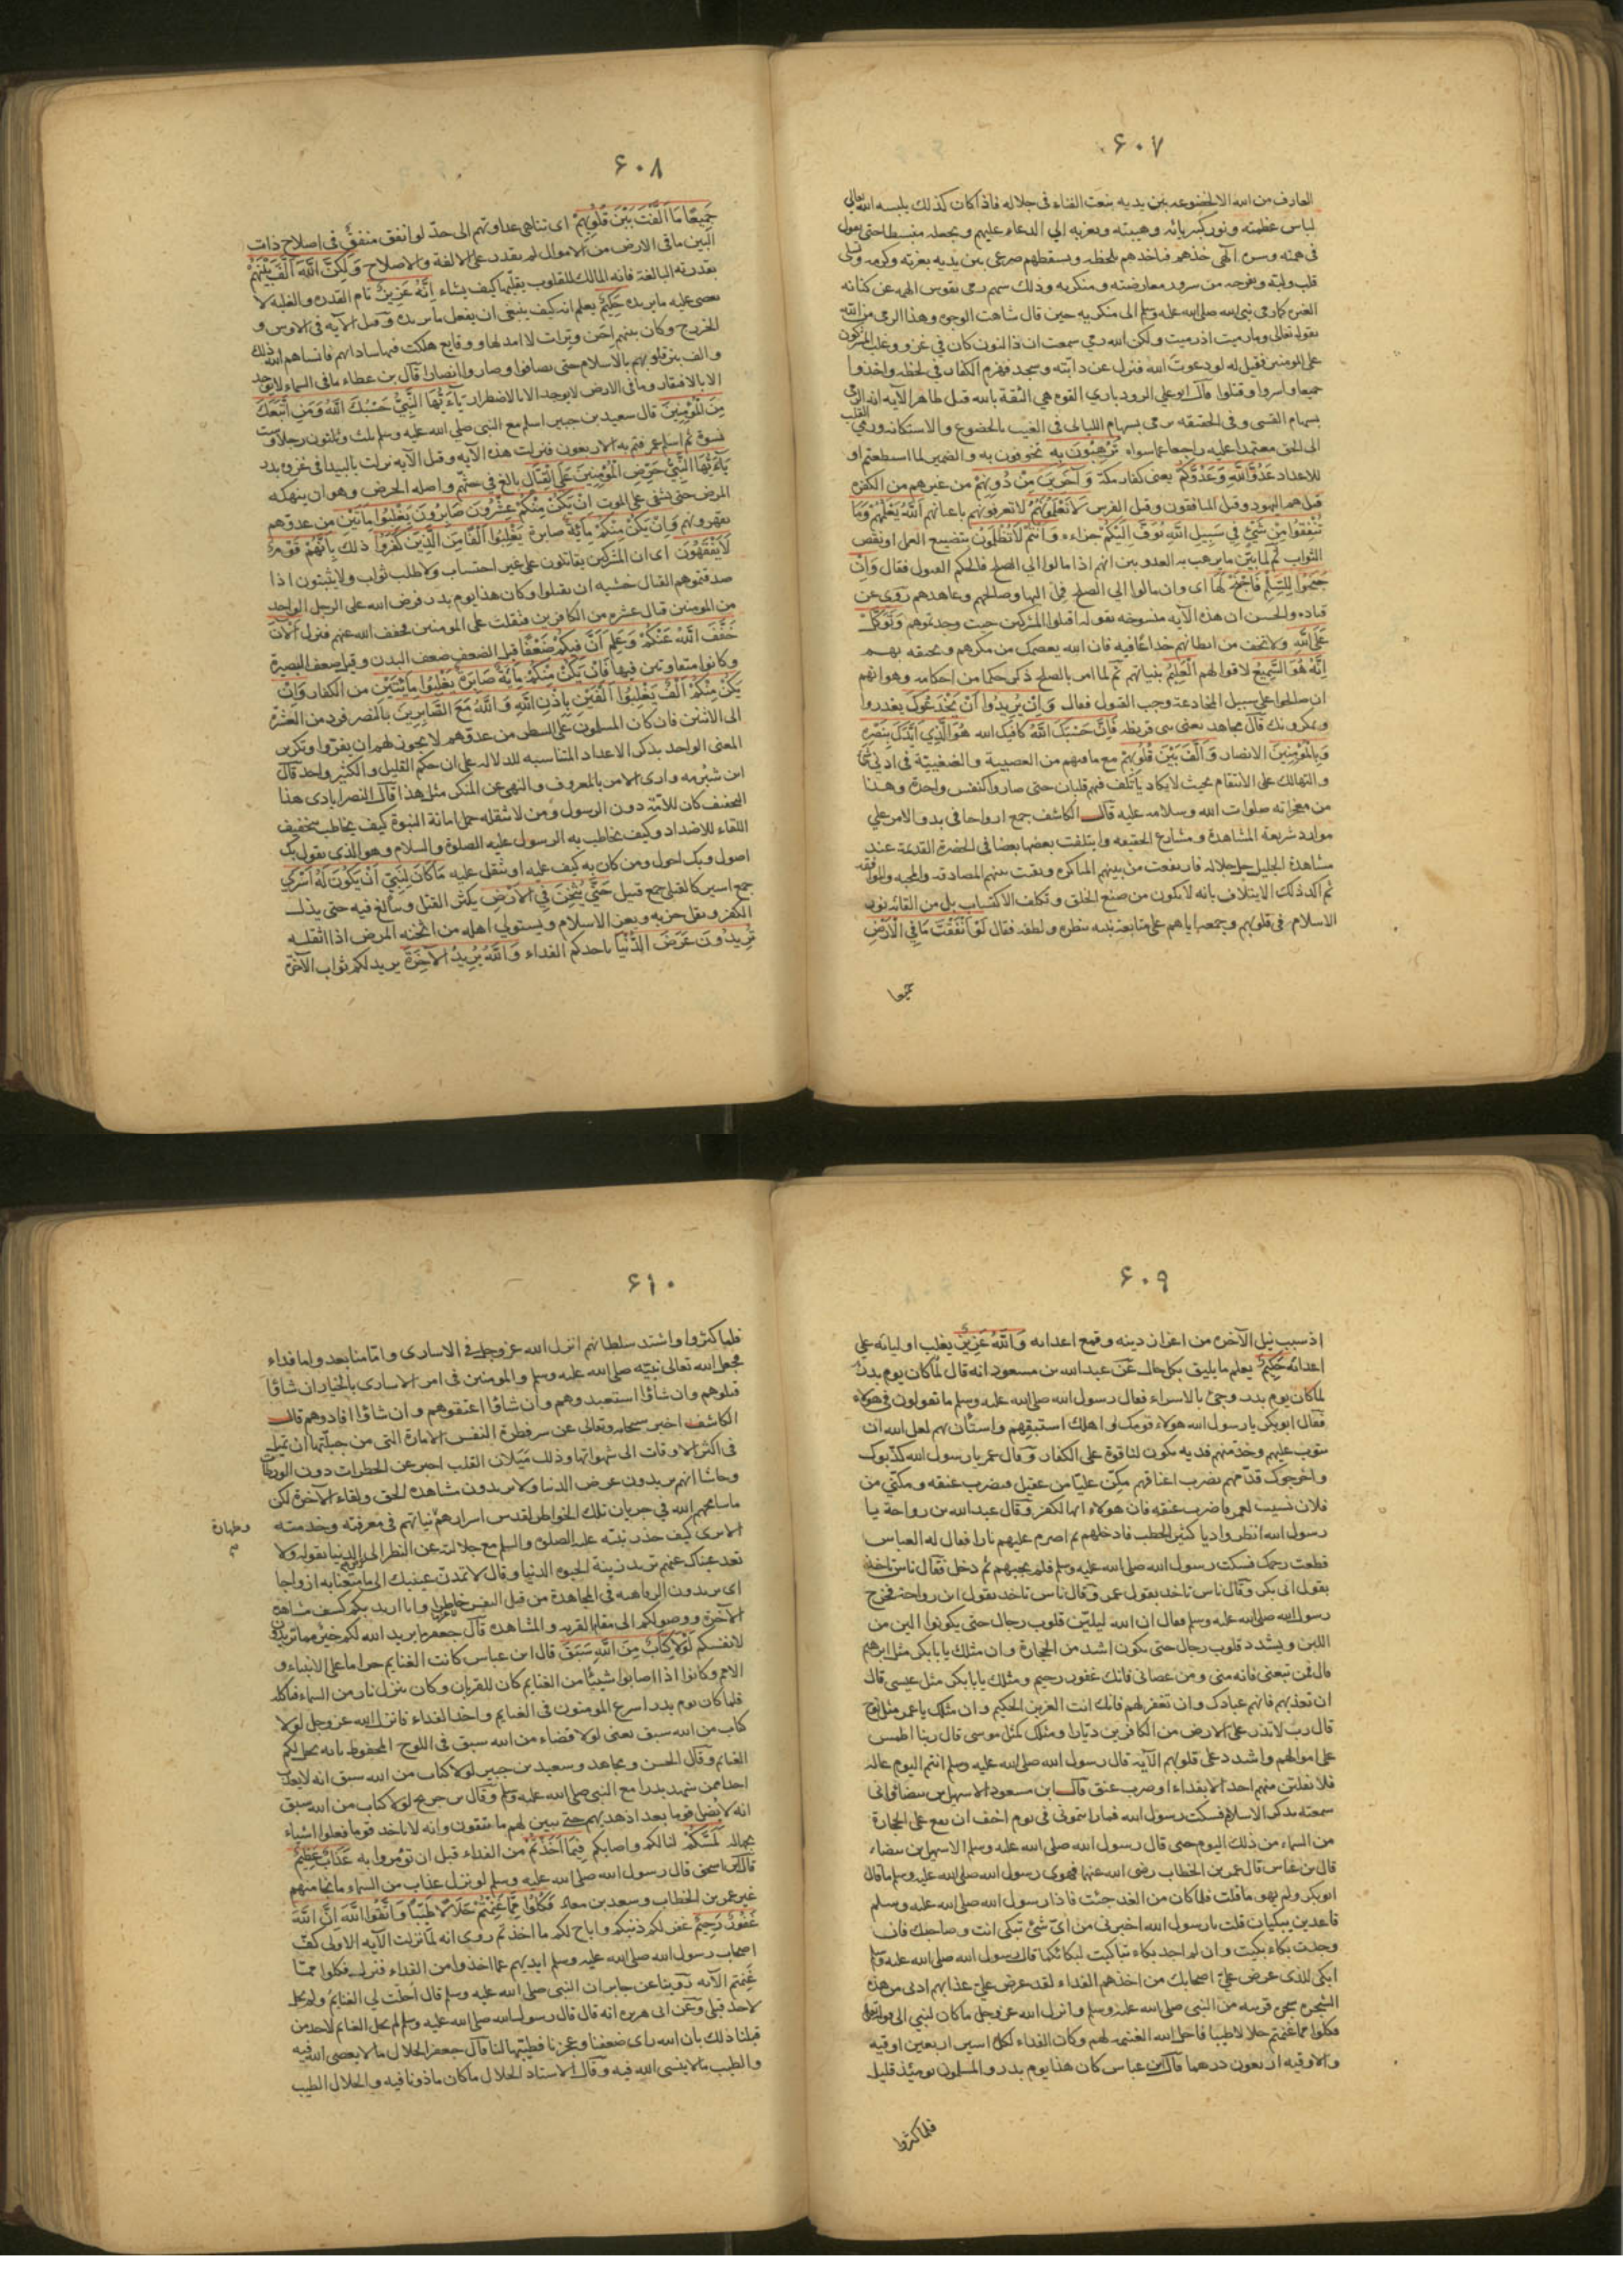 ٦٠٧
العارف من الله الا لخضوعه بين يديه بنعت الفناء فى جلاله فاذا كان كذلك يلبسه الله تعالى
لباس عظمته ونور كبريائه وهيبته ويغريه الى الدعاء عليهم ويجعله منبسطا حتى يقول
فى همته وسره الهى خذهم فياخذهم بلحظه ويسقطهم صرعى بين يديه بعزته وكرمه
وذلك سهم رمى نفوس الهمه عن كنانه
الغيب كما رمى نبى الله صلى الله عليه وسلم الى منكريه حين قال شاهت الوجوه وهذا الرمى من الله
بقوله تعالى وما رميت اذ رميت ولكن الله رمى سمعت ان ذا النون كان فى غزو وغلب المشركون
على المومنين فقيل له لو دعوت الله فنزل عن دابته وسجد فهزم الكفار فى لحظه واخذوا
جميعا واسروا وقتلوا قال ابو على الرودبارى القوه هى الثقة بالله قيل ظاهر الآيه انه الرمى
بسهام القسى وفى الحقيقه رمى بسهام الليالى فى الغيب بالخضوع والاستكانه ورمى القلب
الى الحق معتمدا عليه راجعا عما سواه تُرْهِبُونَ بِهِ تخوفون به والضمير لما استطعتم او
للاعداد عَدُوَّ اللَّهِ وَعَدُوَّكُمْ يعنى كفار مكة وَآخَرِينَ مِنْ دُونِهِمْ من غيرهم من الكفره
قيل هم اليهود وقيل المنافقون وقيل الفرس لَا تَعْلَمُونَهُمْ لا تعرفونهم باعيانهم اللَّهُ يَعْلَمُهُمْ وَمَا
تُنْفِقُوا مِنْ شَيْءٍ فِي سَبِيلِ اللَّهِ يُوَفَّ إِلَيْكُمْ جزاءه وَأَنْتُمْ لَا تُظْلَمُونَ بتضييع العمل او نقص
الثواب ثم لما بيّن ما يرهب به العدو بين انهم اذا مالوا الى الصلح فالحكم القبول فقال وَإِنْ
جَنَحُوا لِلسَّلْمِ فَاجْنَحْ لَهَا اى وان مالوا الى الصلح فمل اليها وصالحهم وعاهدهم روى عن
قتاده والحسن ان هذه الآيه منسوخه بقوله اقتلوا المشركين حيث وجدتموهم وَتَوَكَّلْ
عَلَى اللَّهِ ولا تخف من ابطانهم خداعا فيه فان الله يعصمك من مكرهم ويحيقه بهم
إِنَّهُ هُوَ السَّمِيعُ لاقوالهم الْعَلِيمُ بنياتهم ثم لما امر بالصلح ذكر حكما من احكامه وهو انهم
ان صالحوا على سبيل المخادعة وجب القبول فقال وَإِنْ يُرِيدُوا أَنْ يَخْدَعُوكَ يغدروا
ويمكروا بك قال مجاهد يعنى بنى قريظه فَإِنَّ حَسْبَكَ اللَّهُ كافيك الله هُوَ الَّذِي أَيَّدَكَ بِنَصْرِهِ
وَبِالْمُؤْمِنِينَ الانصار وَأَلَّفَ بَيْنَ قُلُوبِهِمْ مع ما فيهم من العصبية والضغينة فى ادنى شئ
والتهالك على الانتقام بحيث لا يكاد يأتلف فيهم قلبان حتى صاروا كنفس واحدة وهذا
من معجزاته صلوات الله وسلامه عليه قال الكاشف جمع ارواحها فى بدو الامر على
موارد شريعة المشاهدة ومشارع الحقيقه وايتلفت بعضها بعضا فى الحضرة القديمة عند
مشاهدة الجليل جل جلاله فارتفعت من بينهم المناكره وبقت بينهم المصادقه والمحبه والموافقه
ثم اكد ذلك الايتلاف بانه لا يكون من صنع الخلق وتكلف الاكتساب بل من القائه نور
الاسلام فى قلوبهم وجمعه اياهم على متابعة نبيه بنظره ولطفه فقال لَوْ أَنْفَقْتَ مَا فِي الْأَرْضِ
جميعا
٦٠٨
جَمِيعًا مَا أَلَّفْتَ بَيْنَ قُلُوبِهِمْ اى تناهى عداوتهم الى حدّ لو انفق منفق فى اصلاح ذات
البين ما فى الارض من الاموال لم يقدر على الالفة والاصلاح وَلَكِنَّ اللَّهَ أَلَّفَ بَيْنَهُمْ
بقدرته البالغة فانه المالك للقلوب يقلبها كيف يشاء إِنَّهُ عَزِيزٌ تام القدره والغلبة لا
يعصى عليه ما يريده حَكِيمٌ يعلم انه كيف ينبغى ان يفعل ما يريده وقيل الآيه فى الاوس و
الخزرج وكان بينهم احن وترات لا امد لها ووقايع هلكت فيها ساداتهم فانساهم الله ذلك
والف بين قلوبهم بالاسلام حتى تصافوا وصاروا انصارا قال بن عطاء ما فى السماء لا يوجد
الا بالافتقار وما فى الارض لا يوجد الا بالاضطرار يَا أَيُّهَا النَّبِيُّ حَسْبُكَ اللَّهُ وَمَنِ اتَّبَعَكَ
مِنَ الْمُؤْمِنِينَ قال سعيد بن جبير اسلم مع النبى صلى الله عليه وسلم ثلث وثلثون رجلا وست
نسوة ثم اسلم عمر فتم به الاربعون فنزلت هذه الآيه وقيل الآيه نزلت بالبيدا فى غزوه بدر
يَا أَيُّهَا النَّبِيُّ حَرِّضِ الْمُؤْمِنِينَ عَلَى الْقِتَالِ بالغ فى حثهم واصله الحرض وهو ان ينهكه
المرض حتى يشفى على الموت إِنْ يَكُنْ مِنْكُمْ عِشْرُونَ صَابِرُونَ يَغْلِبُوا مِائَتَيْنِ من عدوهم
يقهروهم وَإِنْ يَكُنْ مِنْكُمْ مِائَةٌ صابرة يَغْلِبُوا أَلْفًا مِنَ الَّذِينَ كَفَرُوا ذلك بِأَنَّهُمْ قَوْمٌ
لَا يَفْقَهُونَ اى ان المشركين يقاتلون على غير احتساب ولا طلب ثواب ولا يثبتون اذا
صدقتموهم القتال خشيه ان يقتلوا وكان هذا يوم بدر فرض الله على الرجل الواحد
من المومنين قتال عشره من الكافرين فثقلت على المومنين فخفف الله عنهم فنزل الْآنَ
خَفَّفَ اللَّهُ عَنْكُمْ وَعَلِمَ أَنَّ فِيكُمْ ضَعْفًا قيل الضعف ضعف البدن وقيل ضعف البصيرة
وكانوا متفاوتين فيها فَإِنْ يَكُنْ مِنْكُمْ مِائَةٌ صَابِرَةٌ يَغْلِبُوا مِائَتَيْنِ من الكفار وَإِنْ
يَكُنْ مِنْكُمْ أَلْفٌ يَغْلِبُوا أَلْفَيْنِ بِإِذْنِ اللَّهِ وَاللَّهُ مَعَ الصَّابِرِينَ بالنصر فرد من العشرة
الى الاثنين فان كان المسلمون على الشطر من عدوهم لا يجوز لهم ان يفروا وتكرير
المعنى الواحد بذكر الاعداد المتناسبه للدلاله على ان حكم القليل والكثير واحد قال
ابن شبرمه وارى الامر بالمعروف والنهى عن المنكر مثل هذا قال النصرابادى هذا
التخفيف كان للامّة دون الرسول ومن لا تثقله حمل امانة النبوة كيف يخاطب بتخفيف
اللقاء للاضداد وكيف يخاطب به الرسول عليه الصلوة والسلام وهو الذى يقول بك
اصول وبك احول ومن كان به كيف عليه او يثقل عليه مَا كَانَ لِنَبِيٍّ أَنْ يَكُونَ لَهُ أَسْرَى
جمع اسير كالقتلى جمع قتيل حَتَّى يُثْخِنَ فِي الْأَرْضِ يكثر القتل ويبالغ فيه حتى يذل
الكفر ويقل حزبه ويعز الاسلام ويستولى اهله من اثخنه المرض اذا اثقله
تُرِيدُونَ عَرَضَ الدُّنْيَا باخذكم الفداء وَاللَّهُ يُرِيدُ الْآخِرَةَ يريد لكم ثواب الآخرة
٦٠٩
او سبب نيل الآخره من اعزاز دينه وقمع اعدائه وَاللَّهُ عَزِيزٌ يغلب اوليائه على
اعدائه حَكِيمٌ يعلم ما يليق بكل حال عن عبد الله بن مسعود انه قال لما كان يوم بدر
لما كان يوم بدر وجئ بالاسراء فقال رسول الله صلى الله عليه وسلم ما تقولون فى هولاء
فقال ابو بكر يا رسول الله هولاء قومك واهلك استبقهم واستأن بهم لعل الله ان
يتوب عليهم وخذ منهم فديه يكون لنا قوة على الكفار وقال عمر يا رسول الله كذبوك
واخرجوك قدّمهم نضرب اعناقهم مكّن عليّا من عقيل فيضرب عنقه ومكّنى من
فلان نسيب لعمر فاضرب عنقه فان هولاء ائمة الكفر وقال عبد الله بن رواحة يا
رسول الله انظر واديا كثير الحطب فادخلهم ثم اضرم عليهم نارا فقال له العباس
قطعت رحمك فسكت رسول الله صلى الله عليه وسلم فلم يجبهم ثم دخل فقال ناس ياخذ
بقول ابى بكر وقال ناس ياخذ بقول عمر وقال ناس ياخذ بقول ابن رواحة فخرج
رسول الله صلى الله عليه وسلم فقال ان الله ليليّن قلوب رجال حتى يكونوا الين من
اللبن ويشدد قلوب رجال حتى يكون اشد من الحجارة وان مثلك يا ابا بكر مثل ابرهيم
قال فمن تبعنى فانه منى ومن عصانى فانك غفور رحيم ومثلك يا ابا بكر مثل عيسى قال
ان تعذبهم فانهم عبادك وان تغفر لهم فانك انت العزيز الحكيم وان مثلك يا عمر مثل نوح
قال رب لا تذر على الارض من الكافرين ديّارا ومثلك كمثل موسى قال ربنا اطمس
على اموالهم واشدد على قلوبهم الآيه قال رسول الله صلى الله عليه وسلم انتم اليوم عاله
فلا يفلتن منهم احد الا بفداء او ضرب عنق قال ابن مسعود الا سهيل بن بيضا فانى
سمعته يذكر الاسلام فسكت رسول الله فما رايتمونى فى يوم اخف ان يقع على الحجارة
من السماء من ذلك اليوم حتى قال رسول الله صلى الله عليه وسلم الا سهيل بن بيضاء
قال بن عباس قال عمر بن الخطاب رضى الله عنهما فهوى رسول الله صلى الله عليه وسلم ما قال
ابو بكر ولم يهو ما قلت فلما كان من الغد جئت فاذا رسول الله صلى الله عليه وسلم
قاعدين يبكيان قلت يا رسول الله اخبرنى من اىّ شئ تبكى انت وصاحبك فان
وجدت بكاء بكيت وان لم اجد بكاء تباكيت لبكائكما قال رسول الله صلى الله عليه وسلم
ابكى للذى عرض علىّ اصحابك من اخذهم الفداء لقد عرض علىّ عذابهم ادنى من هذه
الشجره شجرة قريبه من النبى صلى الله عليه وسلم وانزل الله عز وجل ما كان لنبى الى قوله تعالى
فكلوا مما غنمتم حلالا طيبا فاحل الله الغنيمه لهم وكان الفداء لكل اسير اربعين اوقيه
والاوقيه اربعون درهما قال ابن عباس كان هذا يوم بدر والمسلمون يومئذ قليل
فلما كثروا
٦١٠
فلما كثروا واشتد سلطانهم انزل الله عز وجل فى الاسارى واما منا بعد واما فداء
فجعل الله تعالى نبيّه صلى الله عليه وسلم والمومنين فى امر الاسارى بالخيار ان شاؤا
قتلوهم وان شاؤا استعبدوهم وان شاؤا اعتقوهم وان شاؤا افادوهم قال
الكاشف اخبر سبحانه وتعالى عن سر فطرة النفس الامارة التى من جبلّتها ان تميل
فى اكثر الاوقات الى شهواتها وذلك ميلان القلب اخبر عن الخطرات دون
وحاشا انهم يريدون عرض الدنيا ولا يريدون مشاهده الحق ولقاء الآخرة لكن
ما سامحهم الله فى جريان تلك الخواطر لقدس اسرارهم نياتهم فى معرفته وخدمته
وطهارة
الا ترى كيف حذر نبيّه عليه الصلوة والسلم مع جلالته عن النظر الى الدنيا بقوله ولا
تعد عيناك عنهم تريد زينة الحيوه الدنيا وقال لا تمدنّ عينيك الى ما متعنا به ازواجا
اى يريدون الرفاهيه فى المجاهدة من قبل النفس وانا اريد بكم كشف مشاهدة
الآخرة ووصولكم الى مقام القربه والمشاهده قال جعفر ما يريد الله لكم خير مما تريدون
لانفسكم لَوْلَا كِتَابٌ مِنَ اللَّهِ سَبَقَ قال ابن عباس كانت الغنايم حراما على الانبياء و
الامم وكانوا اذا اصابوا شيئا من الغنايم كان للقربان وكان ينزل نار من السماء فتاكله
فلما كان يوم بدر اسرع المومنون فى الغنايم واخذ الفداء فانزل الله عز وجل لولا
كتاب من الله سبق يعنى لولا قضاء من الله سبق فى اللوح المحفوظ بانه يحل لكم
الغنايم وقال الحسن ومجاهد وسعيد بن جبير لولا كتاب من الله سبق انه لا يعذب
احدا ممن شهد بدرا مع النبى صلى الله عليه وسلم وقال بن جريج لولا كتاب من الله سبق
انه لا يضل قوما بعد اذ هديهم حتى يبين لهم ما يتقون وانه لا ياخذ قوما فعلوا اشياء
بجهاله لَمَسَّكُمْ لنالكم واصابكم فِيمَا أَخَذْتُمْ من الفداء قبل ان تؤمروا به عَذَابٌ عَظِيمٌ
قال ابن اسحق قال رسول الله صلى الله عليه وسلم لو نزل عذاب من السماء ما نجا منهم
غير عمر بن الخطاب وسعد بن معاد فَكُلُوا مِمَّا غَنِمْتُمْ حَلَالًا طَيِّبًا وَاتَّقُوا اللَّهَ إِنَّ اللَّهَ
غَفُورٌ رَحِيمٌ غفر لكم ذنبكم واباح لكم ما اخذتم روى انه لما نزلت الآيه الاولى كفّ
اصحاب رسول الله صلى الله عليه وسلم ايديهم عما اخذوا من الفداء فنزل فكلوا ممّا
غنمتم الآيه روينا عن جابر ان النبى صلى الله عليه وسلم قال احلّت لى الغنايم ولم يحل
لاحد قبلى وعن ابى هريره انه قال قال رسول الله صلى الله عليه وسلم لم يحل الغنايم لاحد من
قبلنا ذلك بان الله راى ضعفنا وعجزنا فطيّبها لنا قال جعفر الحلال ما لا يعصى الله فيه
والطيب ما لا ينسى الله فيه وقال الاستاد الحلال ما كان ماذونا فيه والحلال الطيب